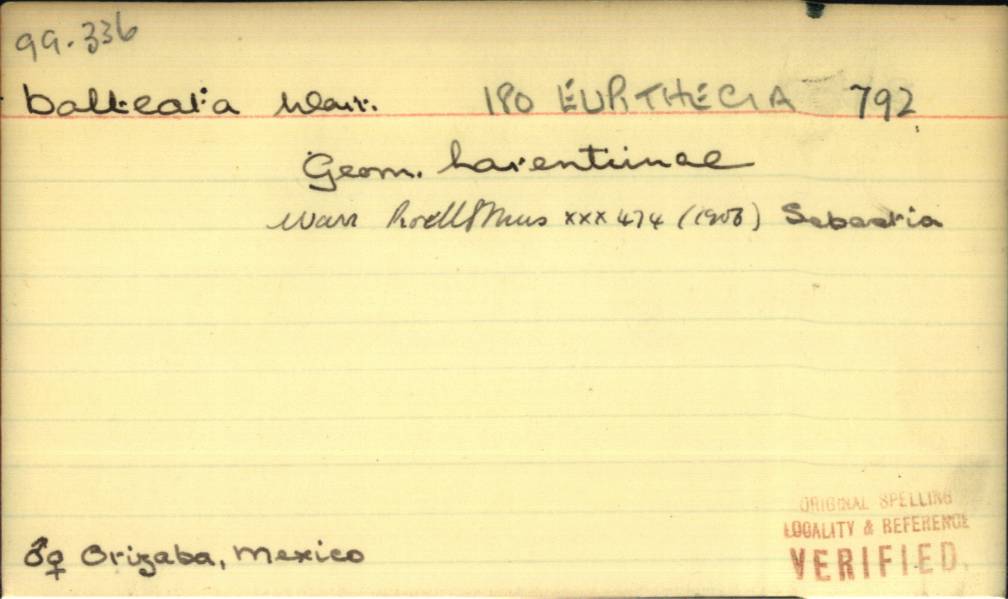 99.336
balteata Warr. 180 EURTHECIA 792
Geom. Larentiinae
Warr XXX 474 (1906) Sebastia
♂♀ Orizaba, Mexico
ORIGINAL SPELLING
LOCALITY & REFERENCE
VERIFIED.